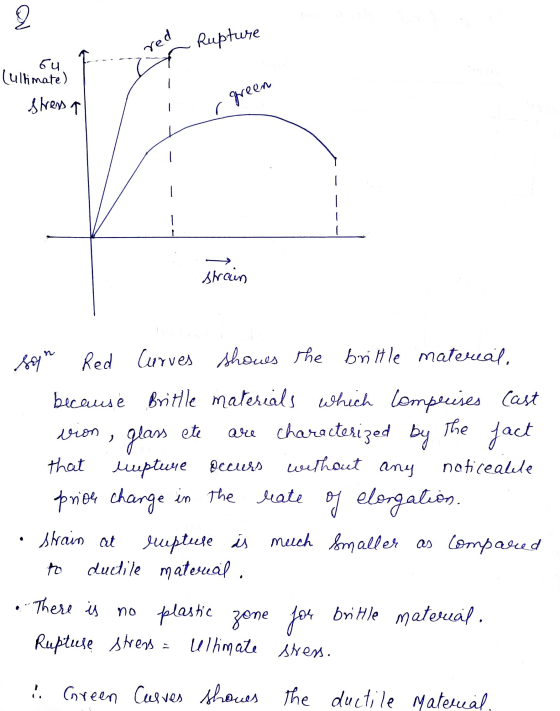 Q
red
Rupture
σu
(Ultimate)
Stress ↑
green
→
Strain
Solⁿ Red Curves shows the brittle material.
because Brittle materials which Comprises Cast
iron, glass etc are characterized by the fact
that rupture occurs without any noticeable
prior change in the rate of elongation.
• Strain at rupture is much smaller as Compared
to ductile material.
• There is no plastic zone for brittle material.
Rupture stress = Ultimate stress.
∴ Green Curves shows the ductile Material.